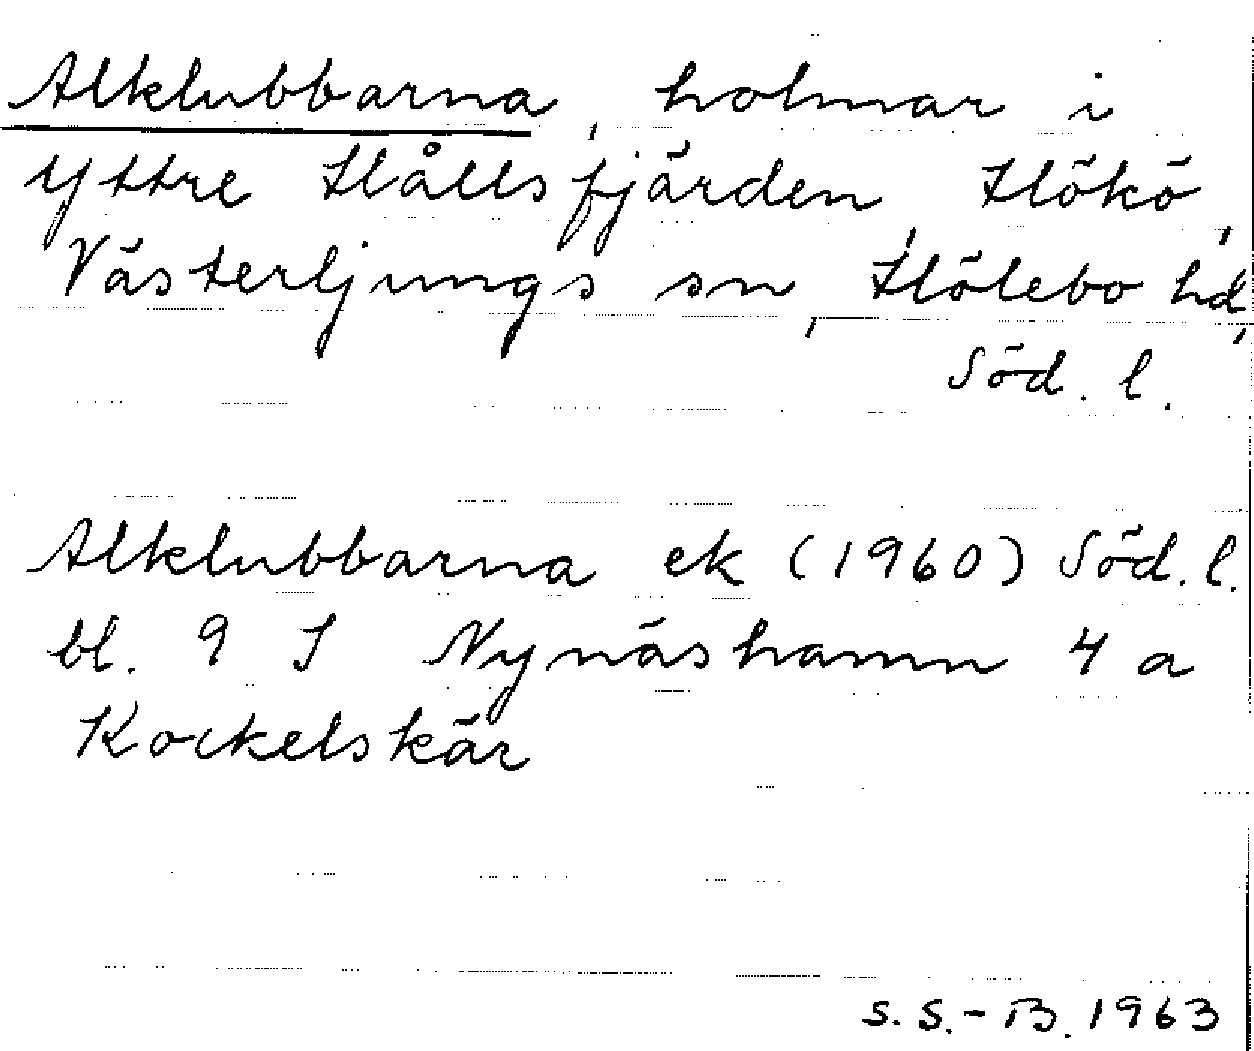 Alklubbarna, holmar i
Yttre Hållsfjärden, Hökö,
Västerljungs sn, Hölebo hd,
Söd. l.
Alklubbarna ek (1960) Söd. l.
bl. 9 I Nynäshamn 4 a
Kockelskär
S. S.-B. 1963